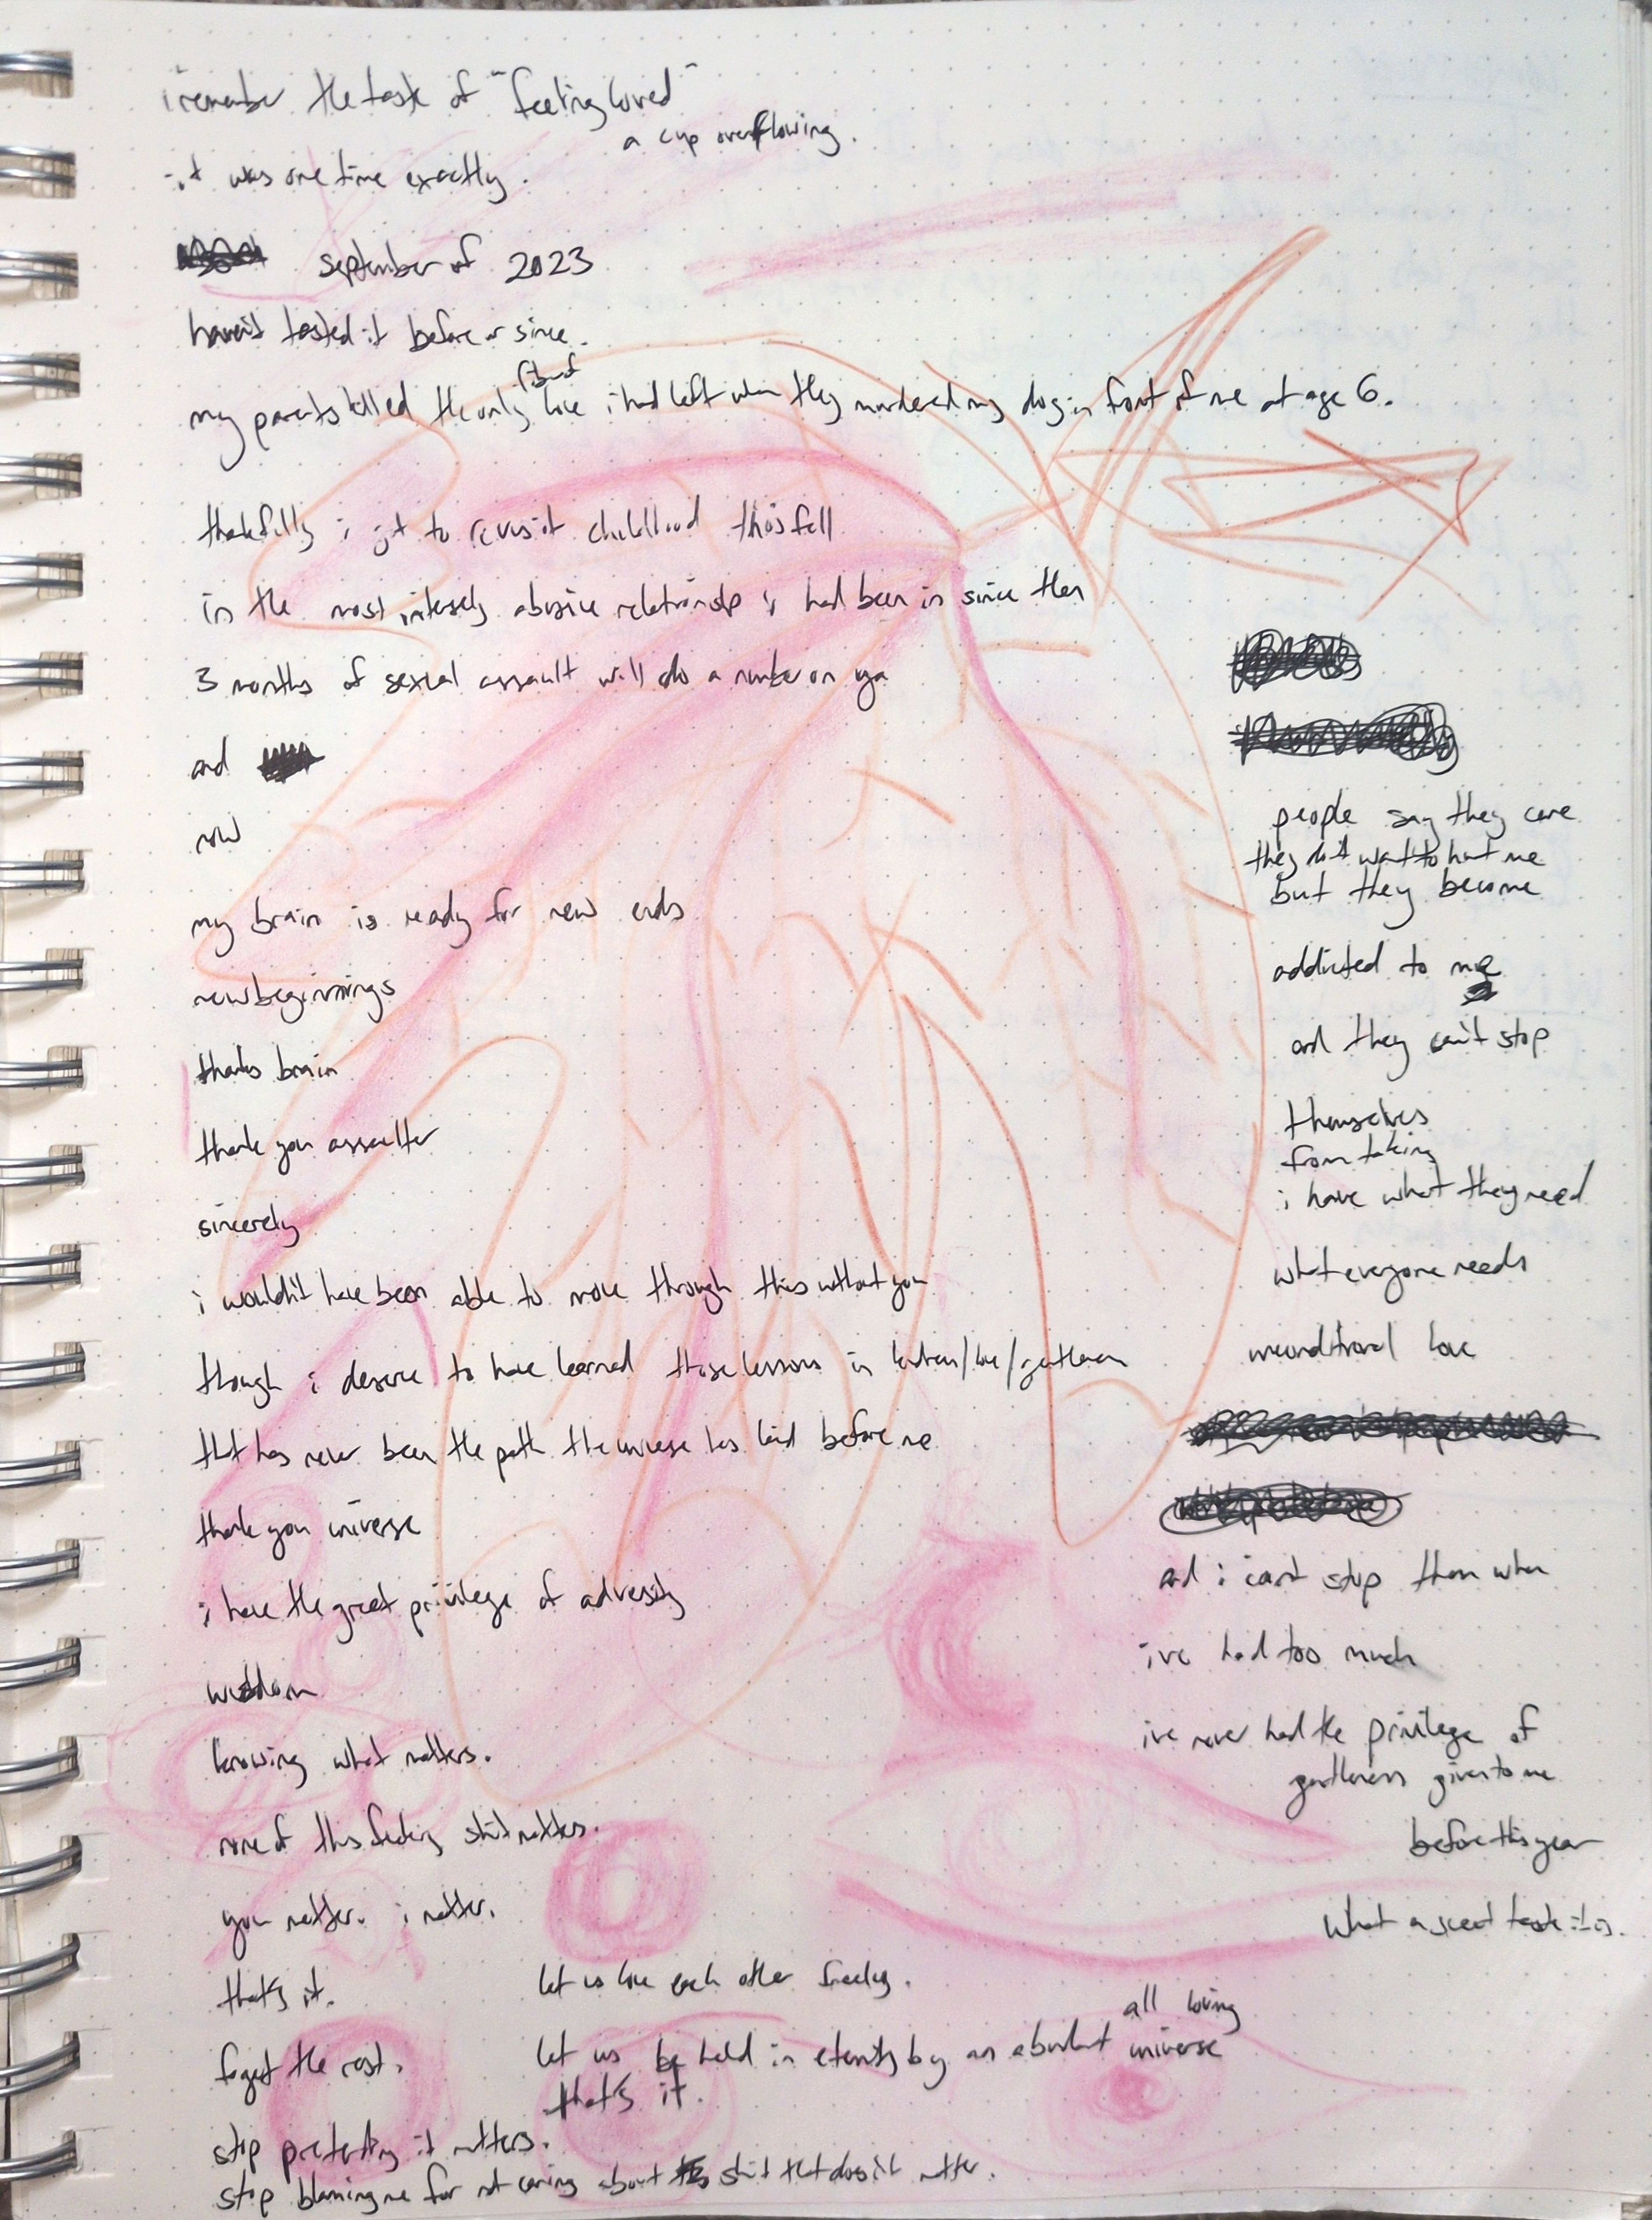 i remember the taste of "feeling loved"
a cup overflowing.
it was one time exactly.
september of 2023
haven't tasted it before or since.
my parents killed the only love i had left when they murdered my dog in front of me at age 6.
thankfully i got to revisit childhood this fall
in the most intensely abusive relationship i had been in since then
3 months of sexual assault will do a number on ya
and
now
my brain is ready for new ends
new beginnings
thanks brain
thank you assaulter
sincerely
i wouldn't have been able to move through this without you
though i deserve to have learned these lessons in kindness/love/gentleness
that has never been the path the universe has laid before me
thank you universe
i have the great privilege of adversity
wisdom
knowing what matters.
none of this shit matters.
you matter. i matter.
that's it.
forget the rest.
stop pretending it matters.
stop blaming me for not caring about shit that doesn't matter.
let us love each other freely.
let us be held in eternity by an abundant all loving universe
that's it.
people say they care
they don't want to hurt me
but they become
addicted to me
and they can't stop
themselves
from taking
i have what they need
what everyone needs
unconditional love
and i can't stop them when
ive had too much
ive never had the privilege of
gentleness given to me
before this year
what a sweet taste it is.